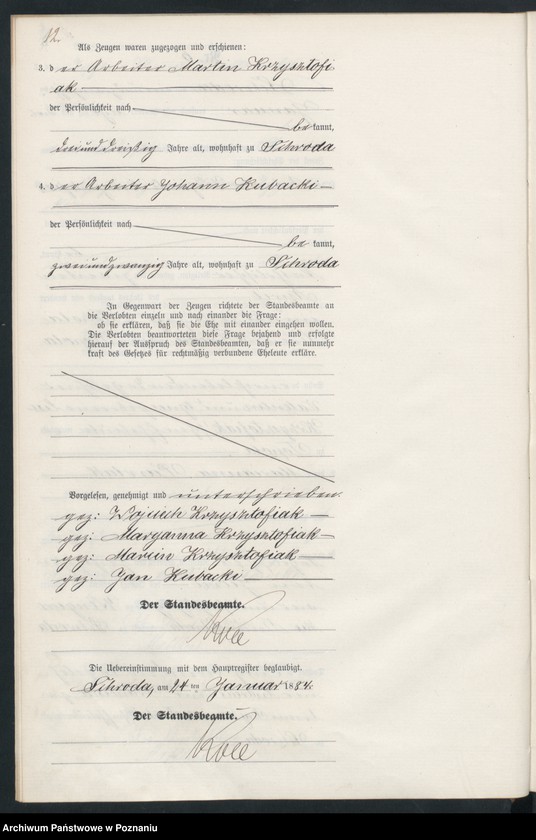 12.
Als Zeugen waren zugezogen und erschienen:
3. der Arbeiter Martin Krzysztofi
ak
der Persönlichkeit nach
bekannt,
dreiunddreißig Jahre alt, wohnhaft zu Schroda
4. der Arbeiter Johann Kubacki
der Persönlichkeit nach
bekannt,
zweiundzwanzig Jahre alt, wohnhaft zu Schroda
In Gegenwart der Zeugen richtete der Standesbeamte an
die Verlobten einzeln und nach einander die Frage:
ob sie erklären, daß sie die Ehe mit einander eingehen wollen.
Die Verlobten beantworteten diese Frage bejahend und erfolgte
hierauf der Ausspruch des Standesbeamten, daß er sie nunmehr
kraft des Gesetzes für rechtmäßig verbundene Eheleute erkläre.
Vorgelesen, genehmigt und unterschrieben
gez: Wojciech Krzysztofiak
gez: Maryanna Krzysztofiak
gez: Marcin Krzysztofiak
gez: Jan Kubacki
Der Standesbeamte.
Die Uebereinstimmung mit dem Hauptregister beglaubigt.
Schroda, am 24 ten Januar 1884.
Der Standesbeamte.
Archiwum Państwowe w Poznaniu